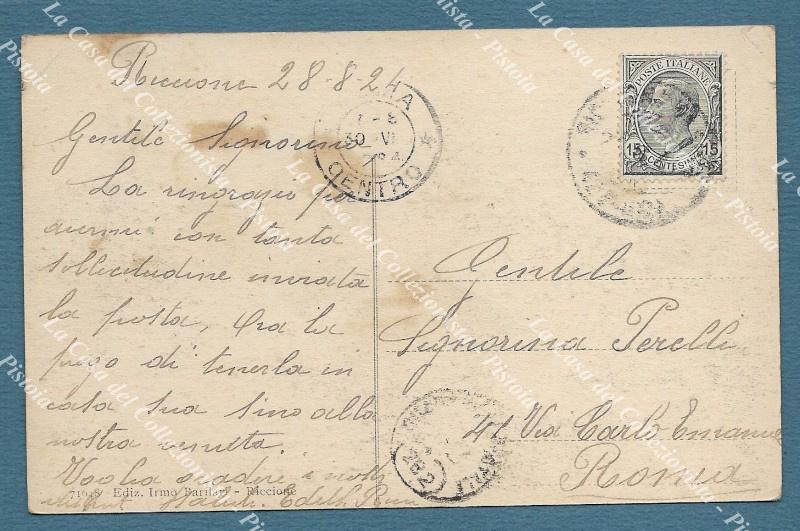 Riccione 28-8-24
Gentile Signorina
La ringrazio per
avermi con tanta
sollecitudine inviata
la posta, Ora la
prego di tenerla in
casa sua sino alla
nostra venuta.
Voglia gradire i nostri
saluti. Edith
71918 Ediz. Irmo Barilari - Riccione
CENTRO
POSTE ITALIANE
15 CENTESIMI 15
Gentile
Signorina Perelli
41 Via Carlo Emanuele
Roma
La Casa del Collezionista - Pistoia